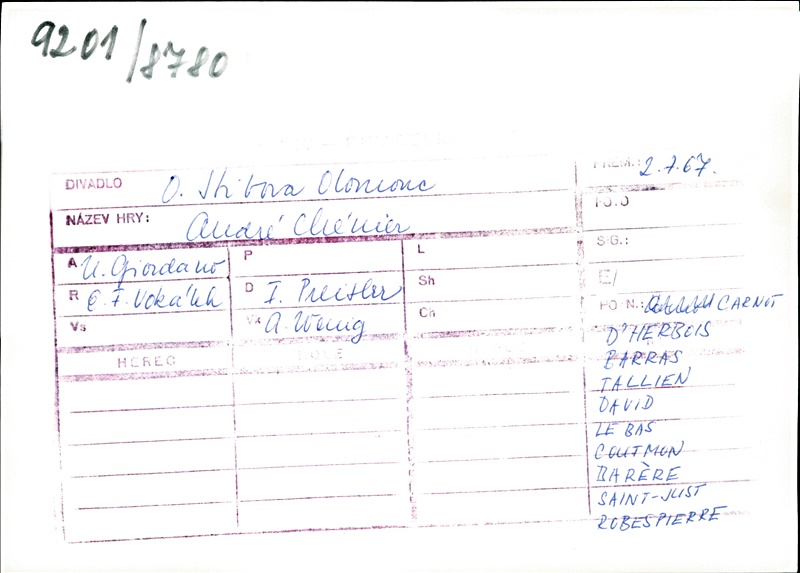 9201/8780
DIVADLO O. Stibora Olomouc
PREM.: 2.7.67.
NÁZEV HRY: André Chénier
FOTO
SIG.:
A U. Giordano P L
E/
R E. F. Vokálek D I. Preisler Sh
POZN.: CARNOT
Vs Vx A. Wenig Ch
D'HERBOIS
HEREC
BARRAS
TALLIEN
DAVID
LE BAS
COUTMON
BARÈRE
SAINT-JUST
ROBESPIERRE